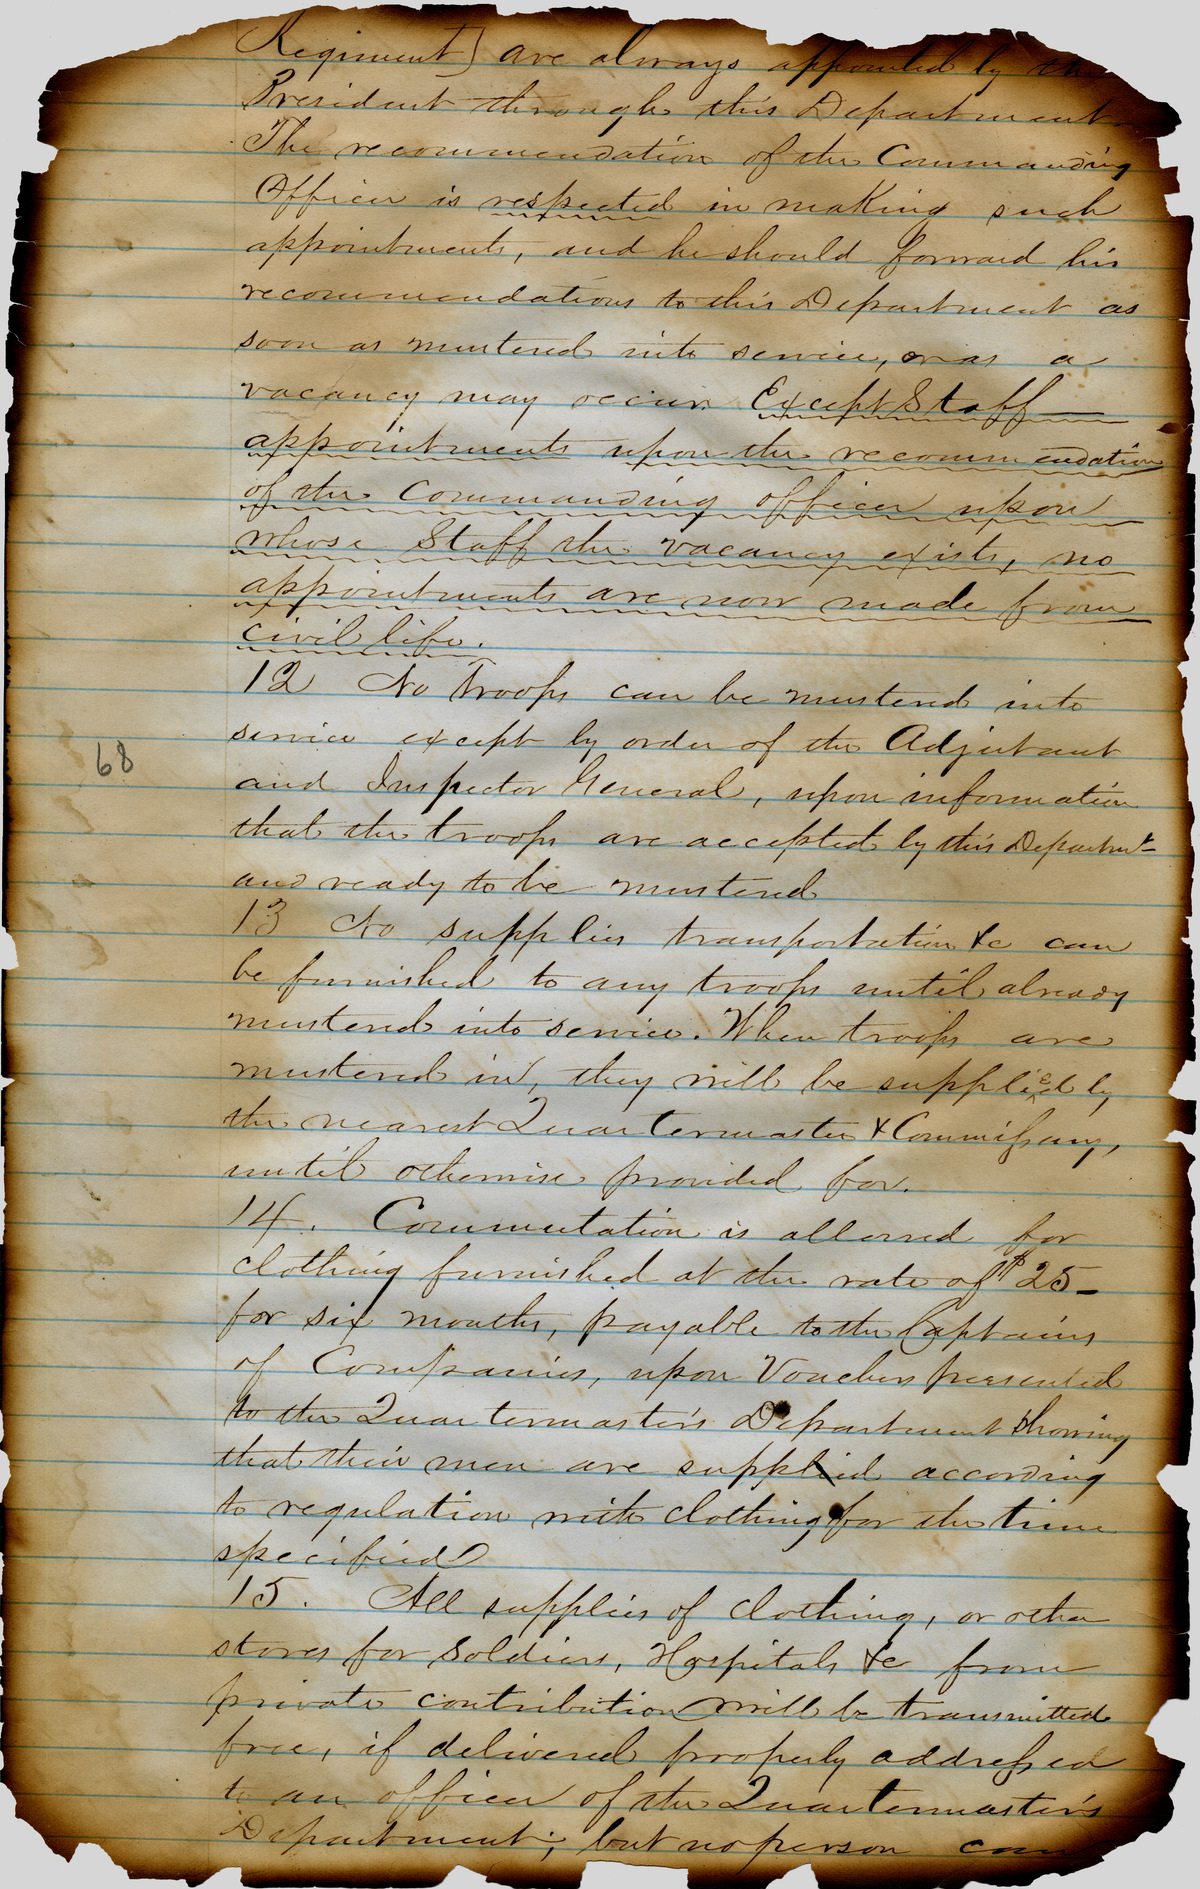 Regiment] are always appointed by the
President through this Department.
The recommendation of the Commanding
Officer is respected in making such
appointments, and he should forward his
recommendations to this Department as
soon as mustered into service, or as a
vacancy may occur. Except Staff
appointments upon the recommendation
of the Commanding officer upon
whose Staff the vacancy exists, no
appointments are now made from
civil life.
12 No Troops can be mustered into
service except by order of the Adjutant
and Inspector General, upon information
that the troops are accepted by this Departmt
and ready to be mustered
68
13 No supplies transportation &c can
be furnished to any troops until already
mustered into service. When troops are
mustered in, they will be supplied by
the nearest Quartermaster & Commissary,
until otherwise provided for.
14. Commutation is allowed for
clothing furnished at the rate of $25
for six months, payable to the Captains
of Companies, upon Vouchers presented
to the Quartermaster's Department showing
that their men are supplied according
to regulation with clothing for the time
specified
15. All supplies of clothing, or other
stores for soldiers, Hospitals &c from
private contribution will be transmitted
free, if delivered properly addressed
to an officer of the Quartermaster's
Department; but no person can